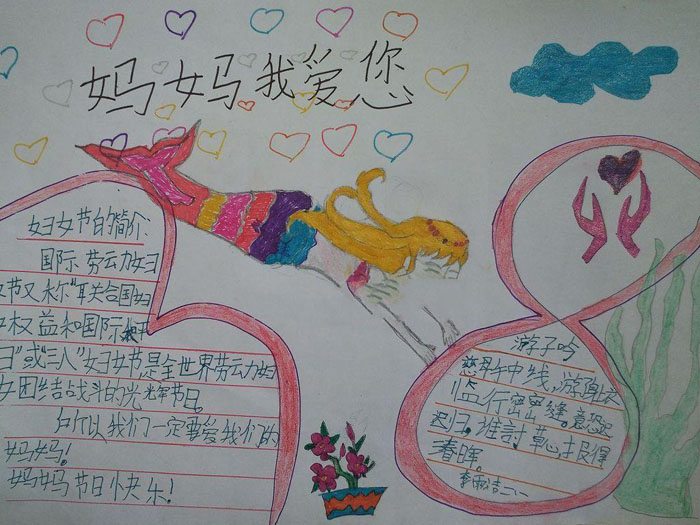 妈妈我爱您
妇女节的简介
国际劳动妇
女节又称"联合国妇
女权益和国际和平
日"或"三八"妇女节是全世界劳动妇
女团结战斗的光辉节日。
所以我们一定要爱我们的
妈妈!
妈妈节日快乐!
游子吟
慈母手中线,游身衣
临行密密缝。意恐迟
迟归。谁討草心报得
春晖。